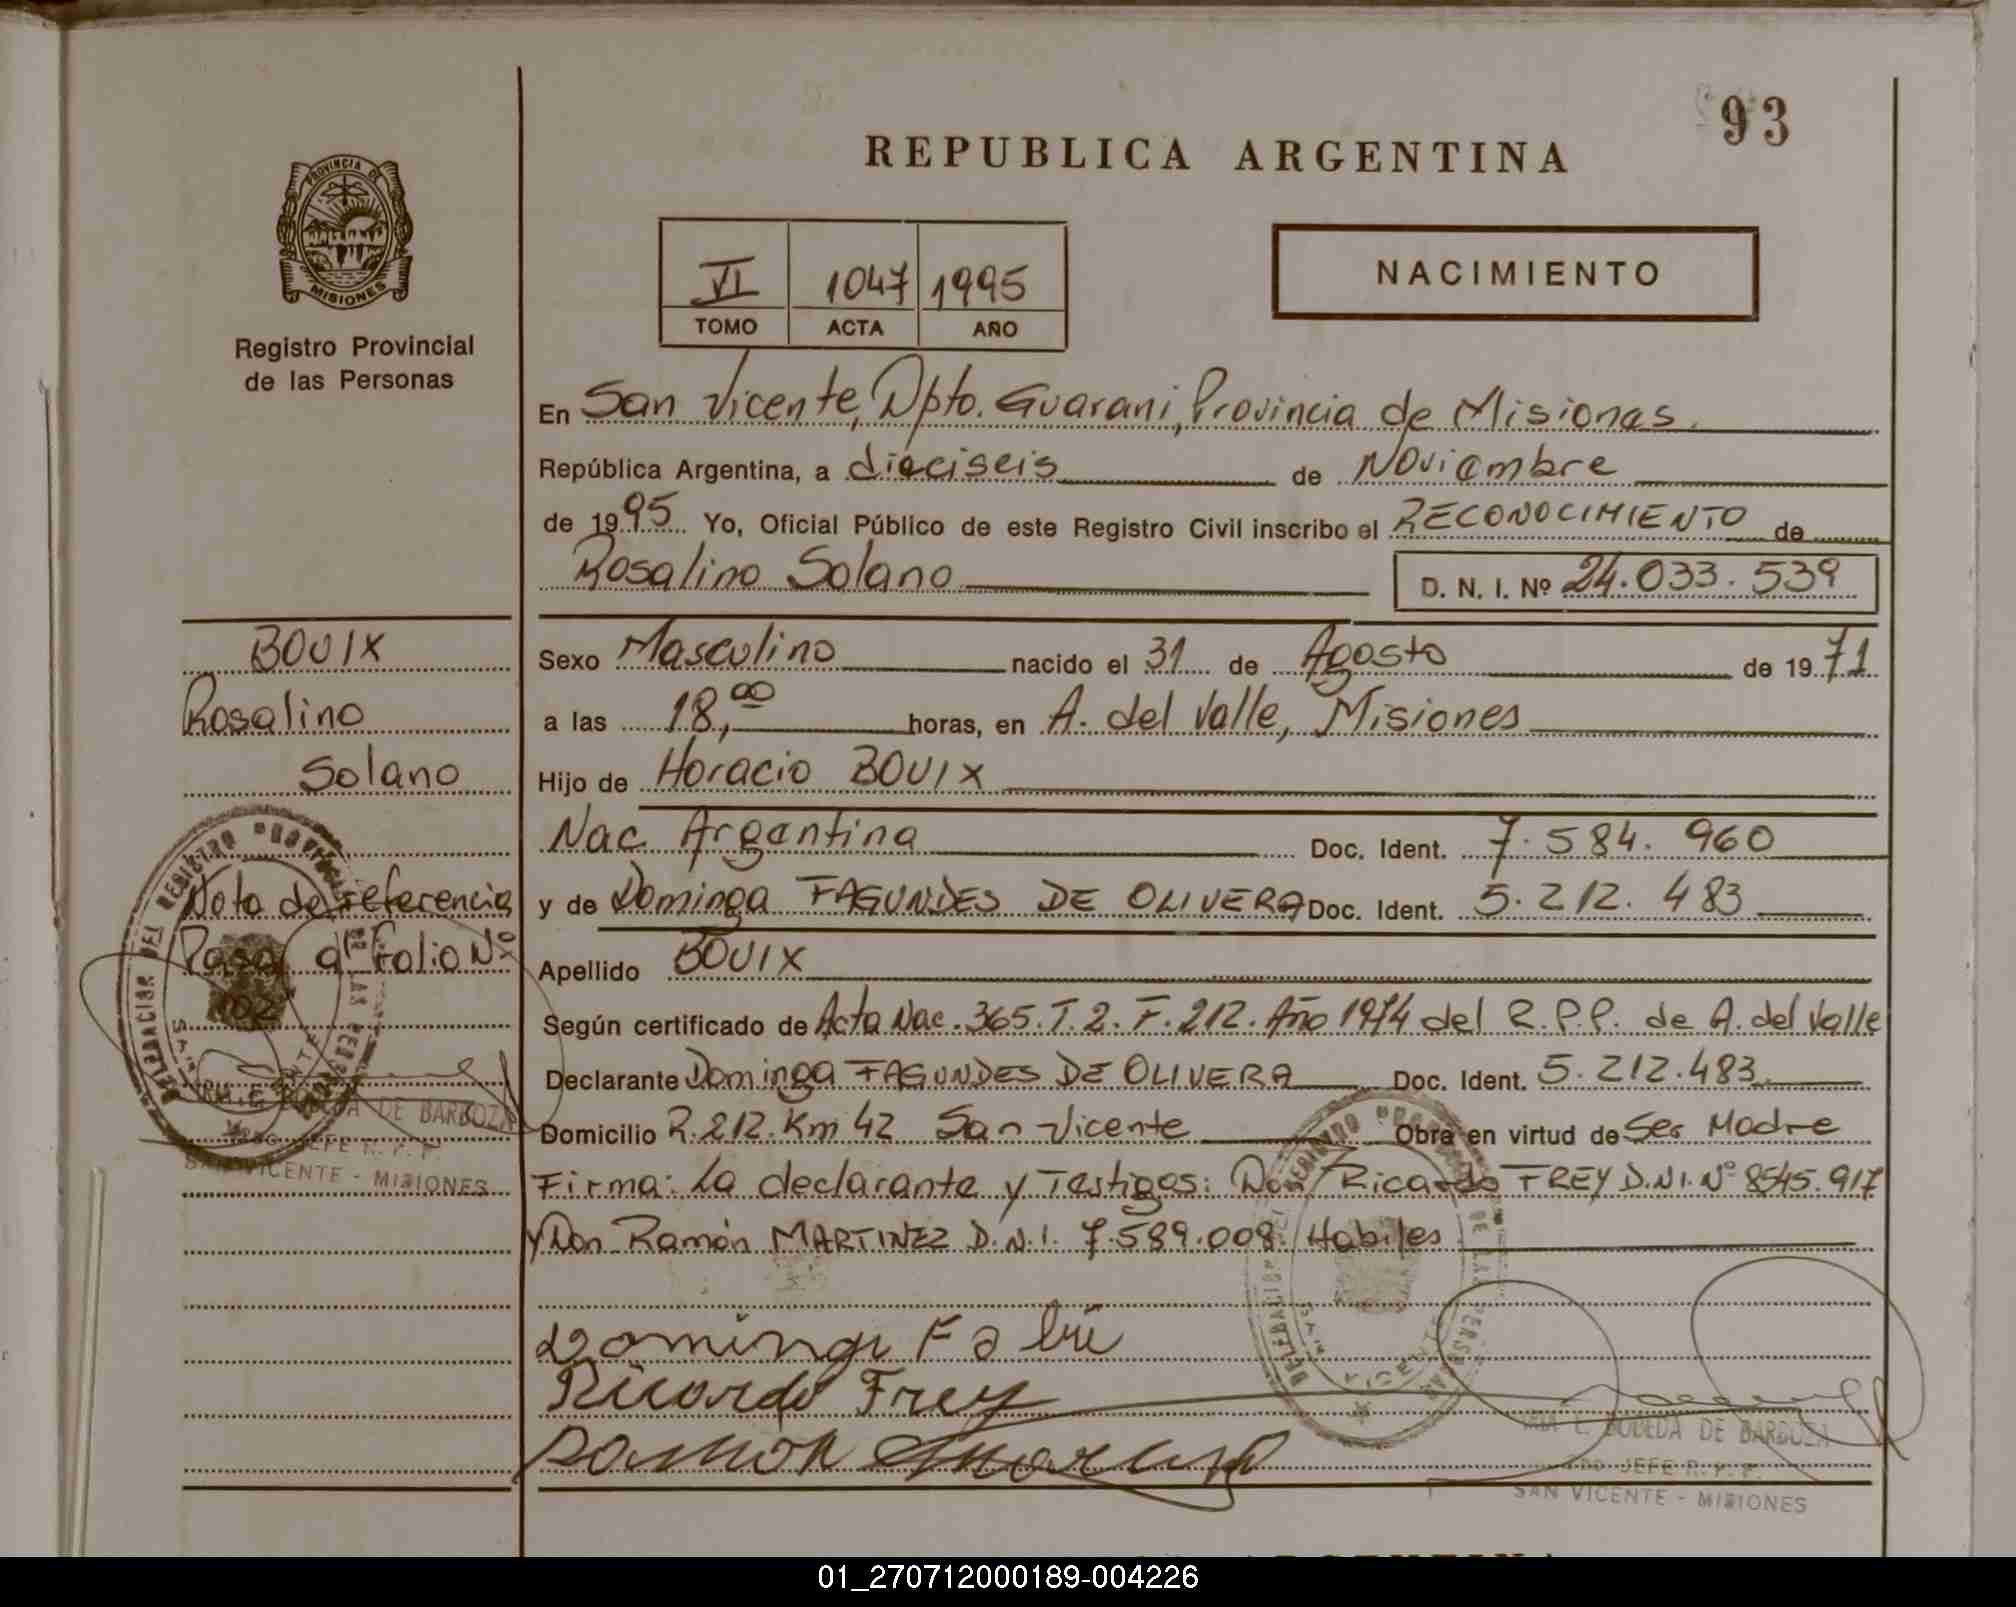 93
REPUBLICA ARGENTINA
PROVINCIA DE
MISIONES
Registro Provincial
de las Personas
VI 1047 1995
TOMO ACTA AÑO
NACIMIENTO
En San Vicente, Dpto. Guarani, Provincia de Misiones.
República Argentina, a dieciseis de Noviembre
de 1995 Yo, Oficial Público de este Registro Civil inscribo el RECONOCIMIENTO de
Rosalino Solano D. N. I. Nº 24.033.539
BOUIX
Rosalino
Solano
Sexo Masculino nacido el 31 de Agosto de 1971
a las 18,00 horas, en A. del Valle, Misiones
Hijo de Horacio BOUIX
Nac. Argentina Doc. Ident. 7.584.960
y de Dominga FAGUNDES DE OLIVERA Doc. Ident. 5.212.483
Apellido BOUIX
Nota de referencia
Pasa al Folio Nº
102
Según certificado de Acta Nac. 365. T. 2. F. 212. Año 1974 del R.P.P. de A. del Valle
Declarante Dominga FAGUNDES DE OLIVERA Doc. Ident. 5.212.483
Domicilio R. 212. Km 42 San Vicente Obra en virtud de Ser Madre
Firma: La declarante y Testigos: Don Ricardo FREY D.N.I. Nº 8545.917
y Don Ramón MARTINEZ D.N.I. 7.589.008 Habiles
DE BARBOZA
JEFE R. P. P.
SAN VICENTE - MISIONES
Ricardo Frey
Ramon
DE BARBOZA
JEFE R. P. P.
SAN VICENTE - MISIONES
01_270712000189-004226